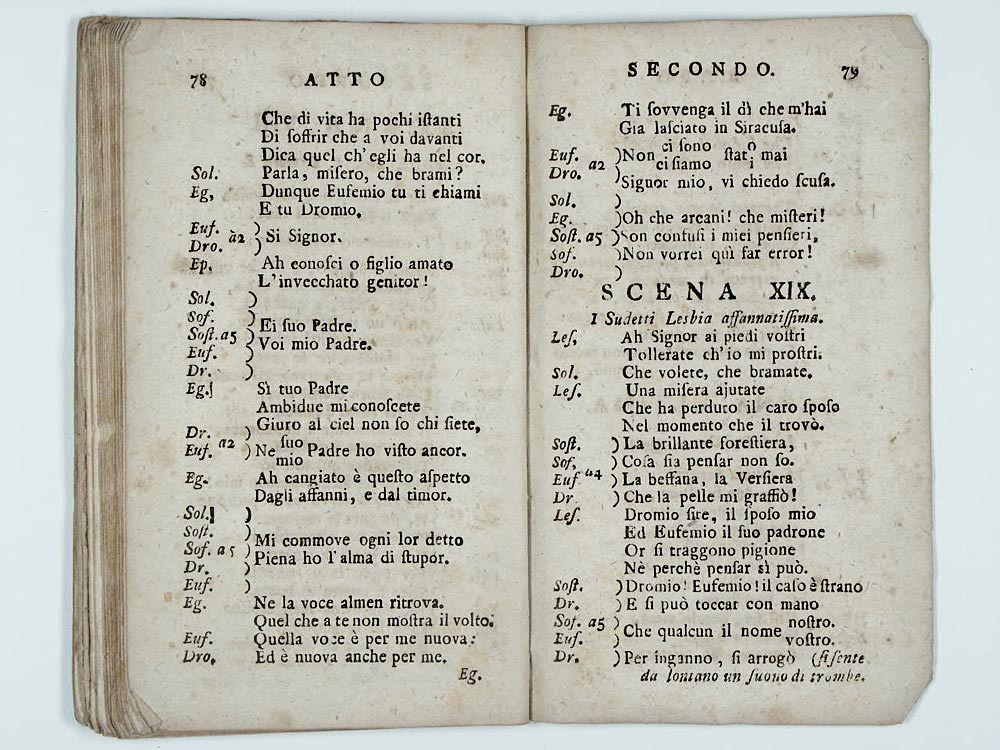 78 ATTO
Che di vita ha pochi iſtanti
Di ſoffrir che a voi davanti
Dica quel ch'egli ha nel cor.
Sol. Parla, miſero, che brami?
Eg, Dunque Eufemio tu ti chiami
E tu Dromio.
Euf. )
Dro. à2 ) Si Signor.
Ep. Ah conoſci o figlio amato
L'invecchato genitor!
Sol. )
Soſ. ) Ei ſuo Padre.
Soſt. a5 ) Voi mio Padre.
Euf. )
Dr. )
Eg. Sì tuo Padre
Ambidue mi conoſcete
Dr. ) Giuro al ciel non ſo chi ſiete,
Euf. a2 ) Ne ſuo mio Padre ho viſto ancor.
Eg. Ah cangiato è queſto aſpetto
Dagli affanni, e dal timor.
Sol. )
Soſt. ) Mi commove ogni lor detto
Soſ. a5 ) Piena ho l'alma di ſtupor.
Dr. )
Euf. )
Eg. Ne la voce almen ritrova.
Quel che a te non moſtra il volto.
Euf. Quella voce è per me nuova:
Dro. Ed è nuova anche per me.
Eg.
SECONDO. 79
Eg. Ti ſovvenga il dì che m'hai
Gia laſciato in Siracuſa.
Euf. ) Non ci ſono ci ſiamo ſtat o i mai
Dro. a2 ) Signor mio, vi chiedo ſcuſa.
Sol. )
Eg. ) Oh che arcani! che miſteri!
Soſt. a5 ) Son confuſi i miei penſieri,
Soſ. ) Non vorrei quì far error!
Dro. )
SCENA XIX.
I Sudetti Lesbia affannatiſſima.
Leſ. Ah Signor ai piedi voſtri
Tollerate ch'io mi proſtri.
Sol. Che volete, che bramate.
Leſ. Una miſera ajutate
Che ha perduto il caro ſpoſo
Nel momento che il trovò.
Soſt. ) La brillante foreſtiera,
Soſ. ) Coſa ſia penſar non ſo.
Euf a4 ) La beffana, la Verſiera
Dr ) Che la pelle mi graffiò!
Leſ. Dromio ſire, il ſpoſo mio
Ed Eufemio il ſuo padrone
Or ſi traggono pigione
Nè perchè penſar sì può.
Soſt. ) Dromio! Eufemio! il caſo è ſtrano
Dr. ) E ſi può toccar con mano
Soſ. a5 ) Che qualcun il nome noſtro.
Euf. ) voſtro.
Dr. ) Per inganno, ſi arrogò (ſi ſente
da lontano un ſuono di trombe.